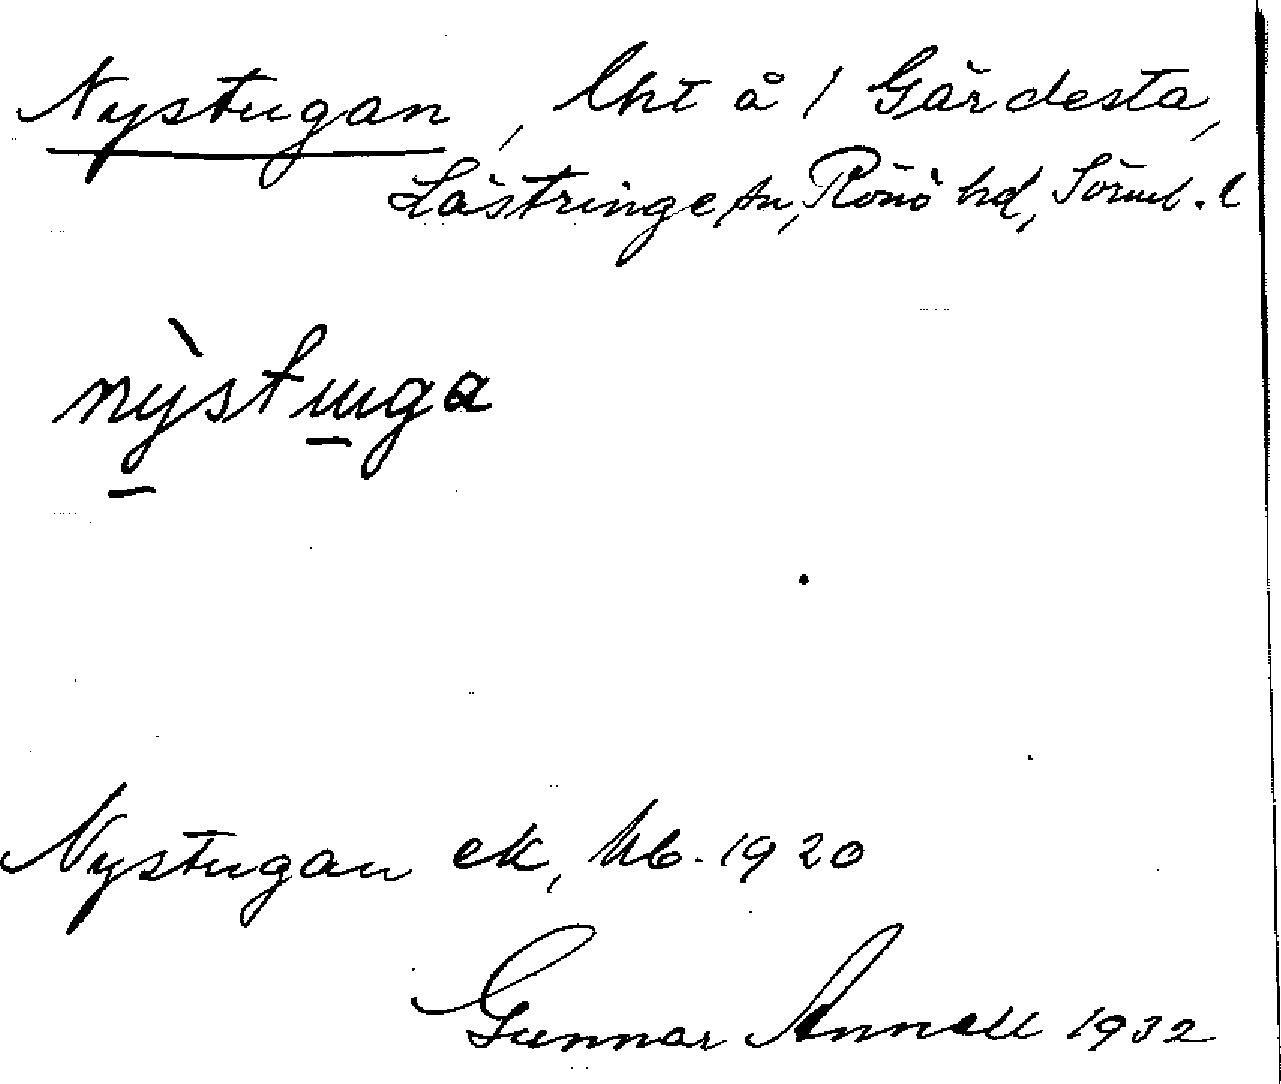 Nystugan, lht å 1 Gärdesta,
Lästringe sn, Rönö hd, Sörml. l
nỳstuga
Nystugan ek, Kb. 1920
Gunnar Annell 1932